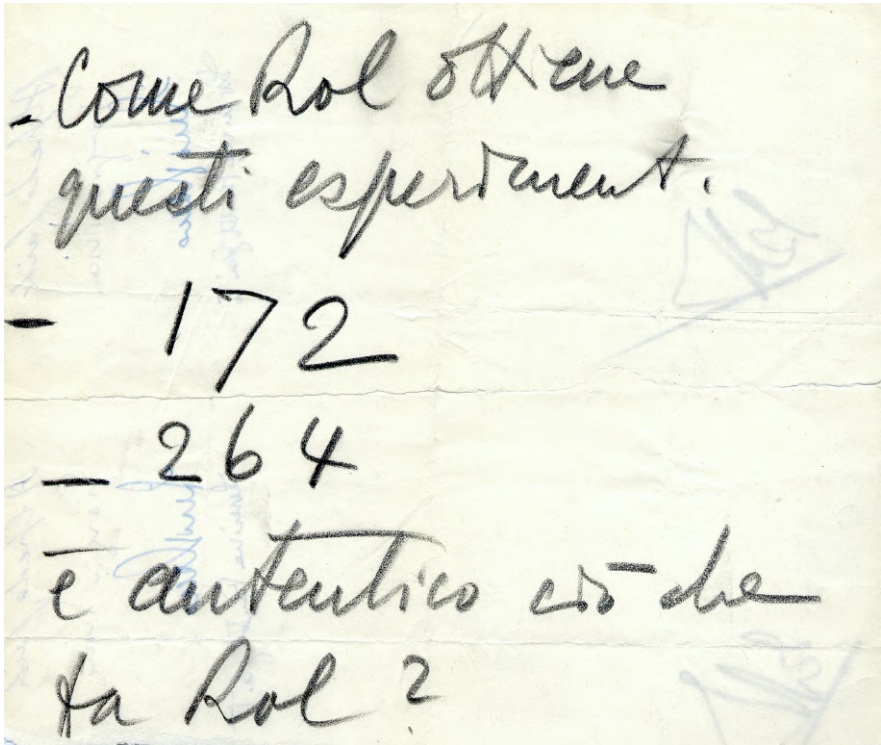 - Come Rol ottiene
questi esperiment.
- 172
- 264
è autentico ciò che
fa Rol ?